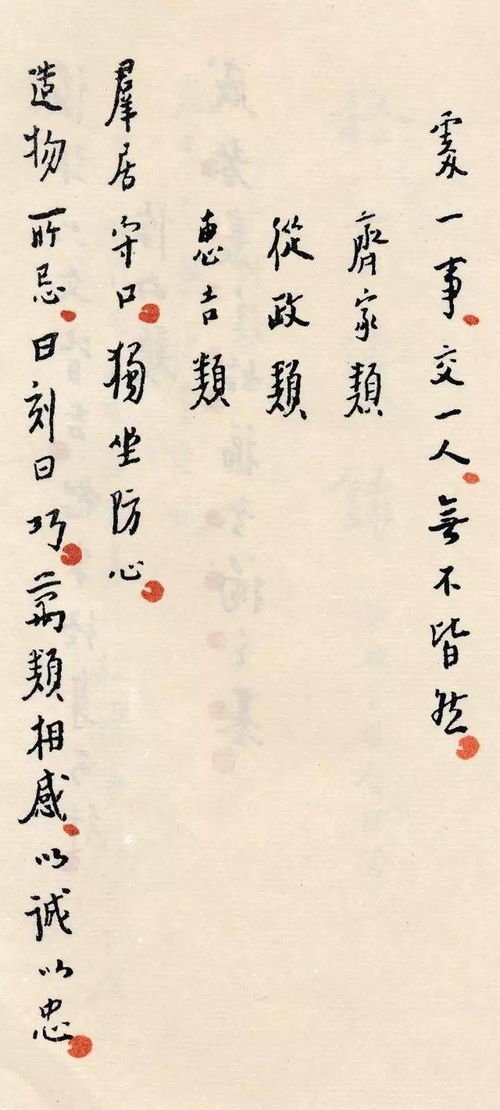 處一事交一人無不皆然
齊家類
從政類
惠吉類
羣居守口獨坐防心
造物所忌曰刻曰巧萬類相感以誠以忠